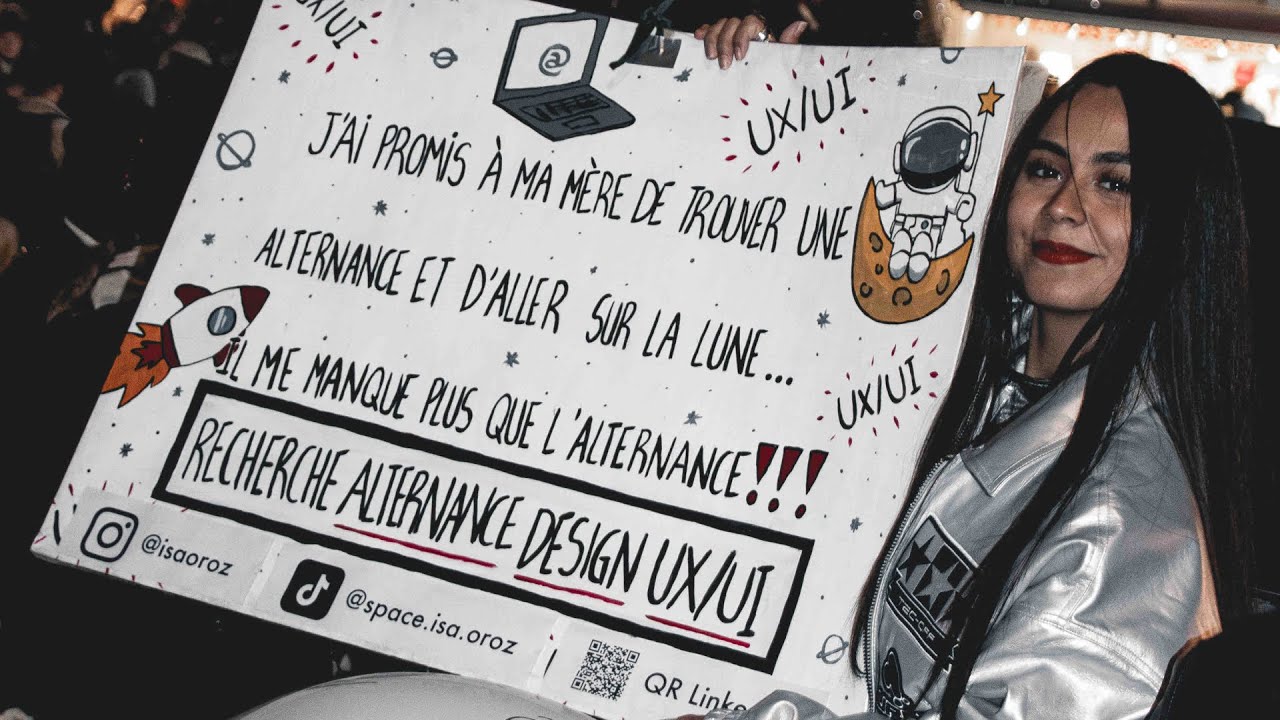 UX/UI
@
UX/UI
J'AI PROMIS À MA MÈRE DE TROUVER UNE
ALTERNANCE ET D'ALLER SUR LA LUNE...
UX/UI
IL ME MANQUE PLUS QUE L'ALTERNANCE!!!
RECHERCHE ALTERNANCE DESIGN UX/UI
@isaoroz
@space.isa.oroz
QR